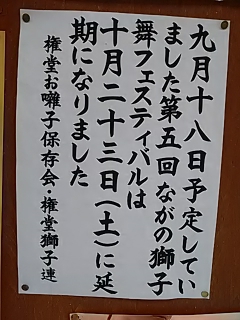 九月十八日予定してい
ました第五回ながの獅子
舞フェスティバルは
十月二十三日(土)に延
期になりました
権堂お囃子保存会・権堂獅子連